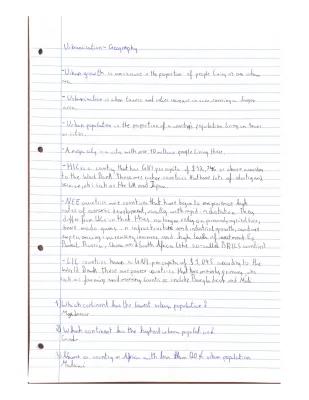 Urbanisation - Geography
- Urban growth is an increase in the proportion of people living in an urban
area.
- Urbanisation is when towns and cities increase in size covering a larger
area.
- Urban population is the proportion of a country's population living in towns
or cities.
- A mega city is a city with over 10 million people living there.
- HIC is a country that has GNI per capita of $12,746 or above according
to the World Bank. These are richer countries that have lots of
such as the UK and Japan.
- NEE countries are countries that have begun to experience high
rates of economic development, usually with rapid industrialisation. They
differ from LICs in that they no longer rely on primary industries,
have made gains in infrastructure and industrial growth, and are
experiencing increasing incomes and high levels of investment. Eg
Brazil, Russia, China and South Africa (the so-called BRICS countries).
- LIC countries have a GNI per capita of $1,045 according to the
World Bank. These are poorer countries that have primary
such as farming and
1) Which continent has the lowest urban population?
2) Which continent has the highest urban population?
3) a country in Africa with less than 20% urban population